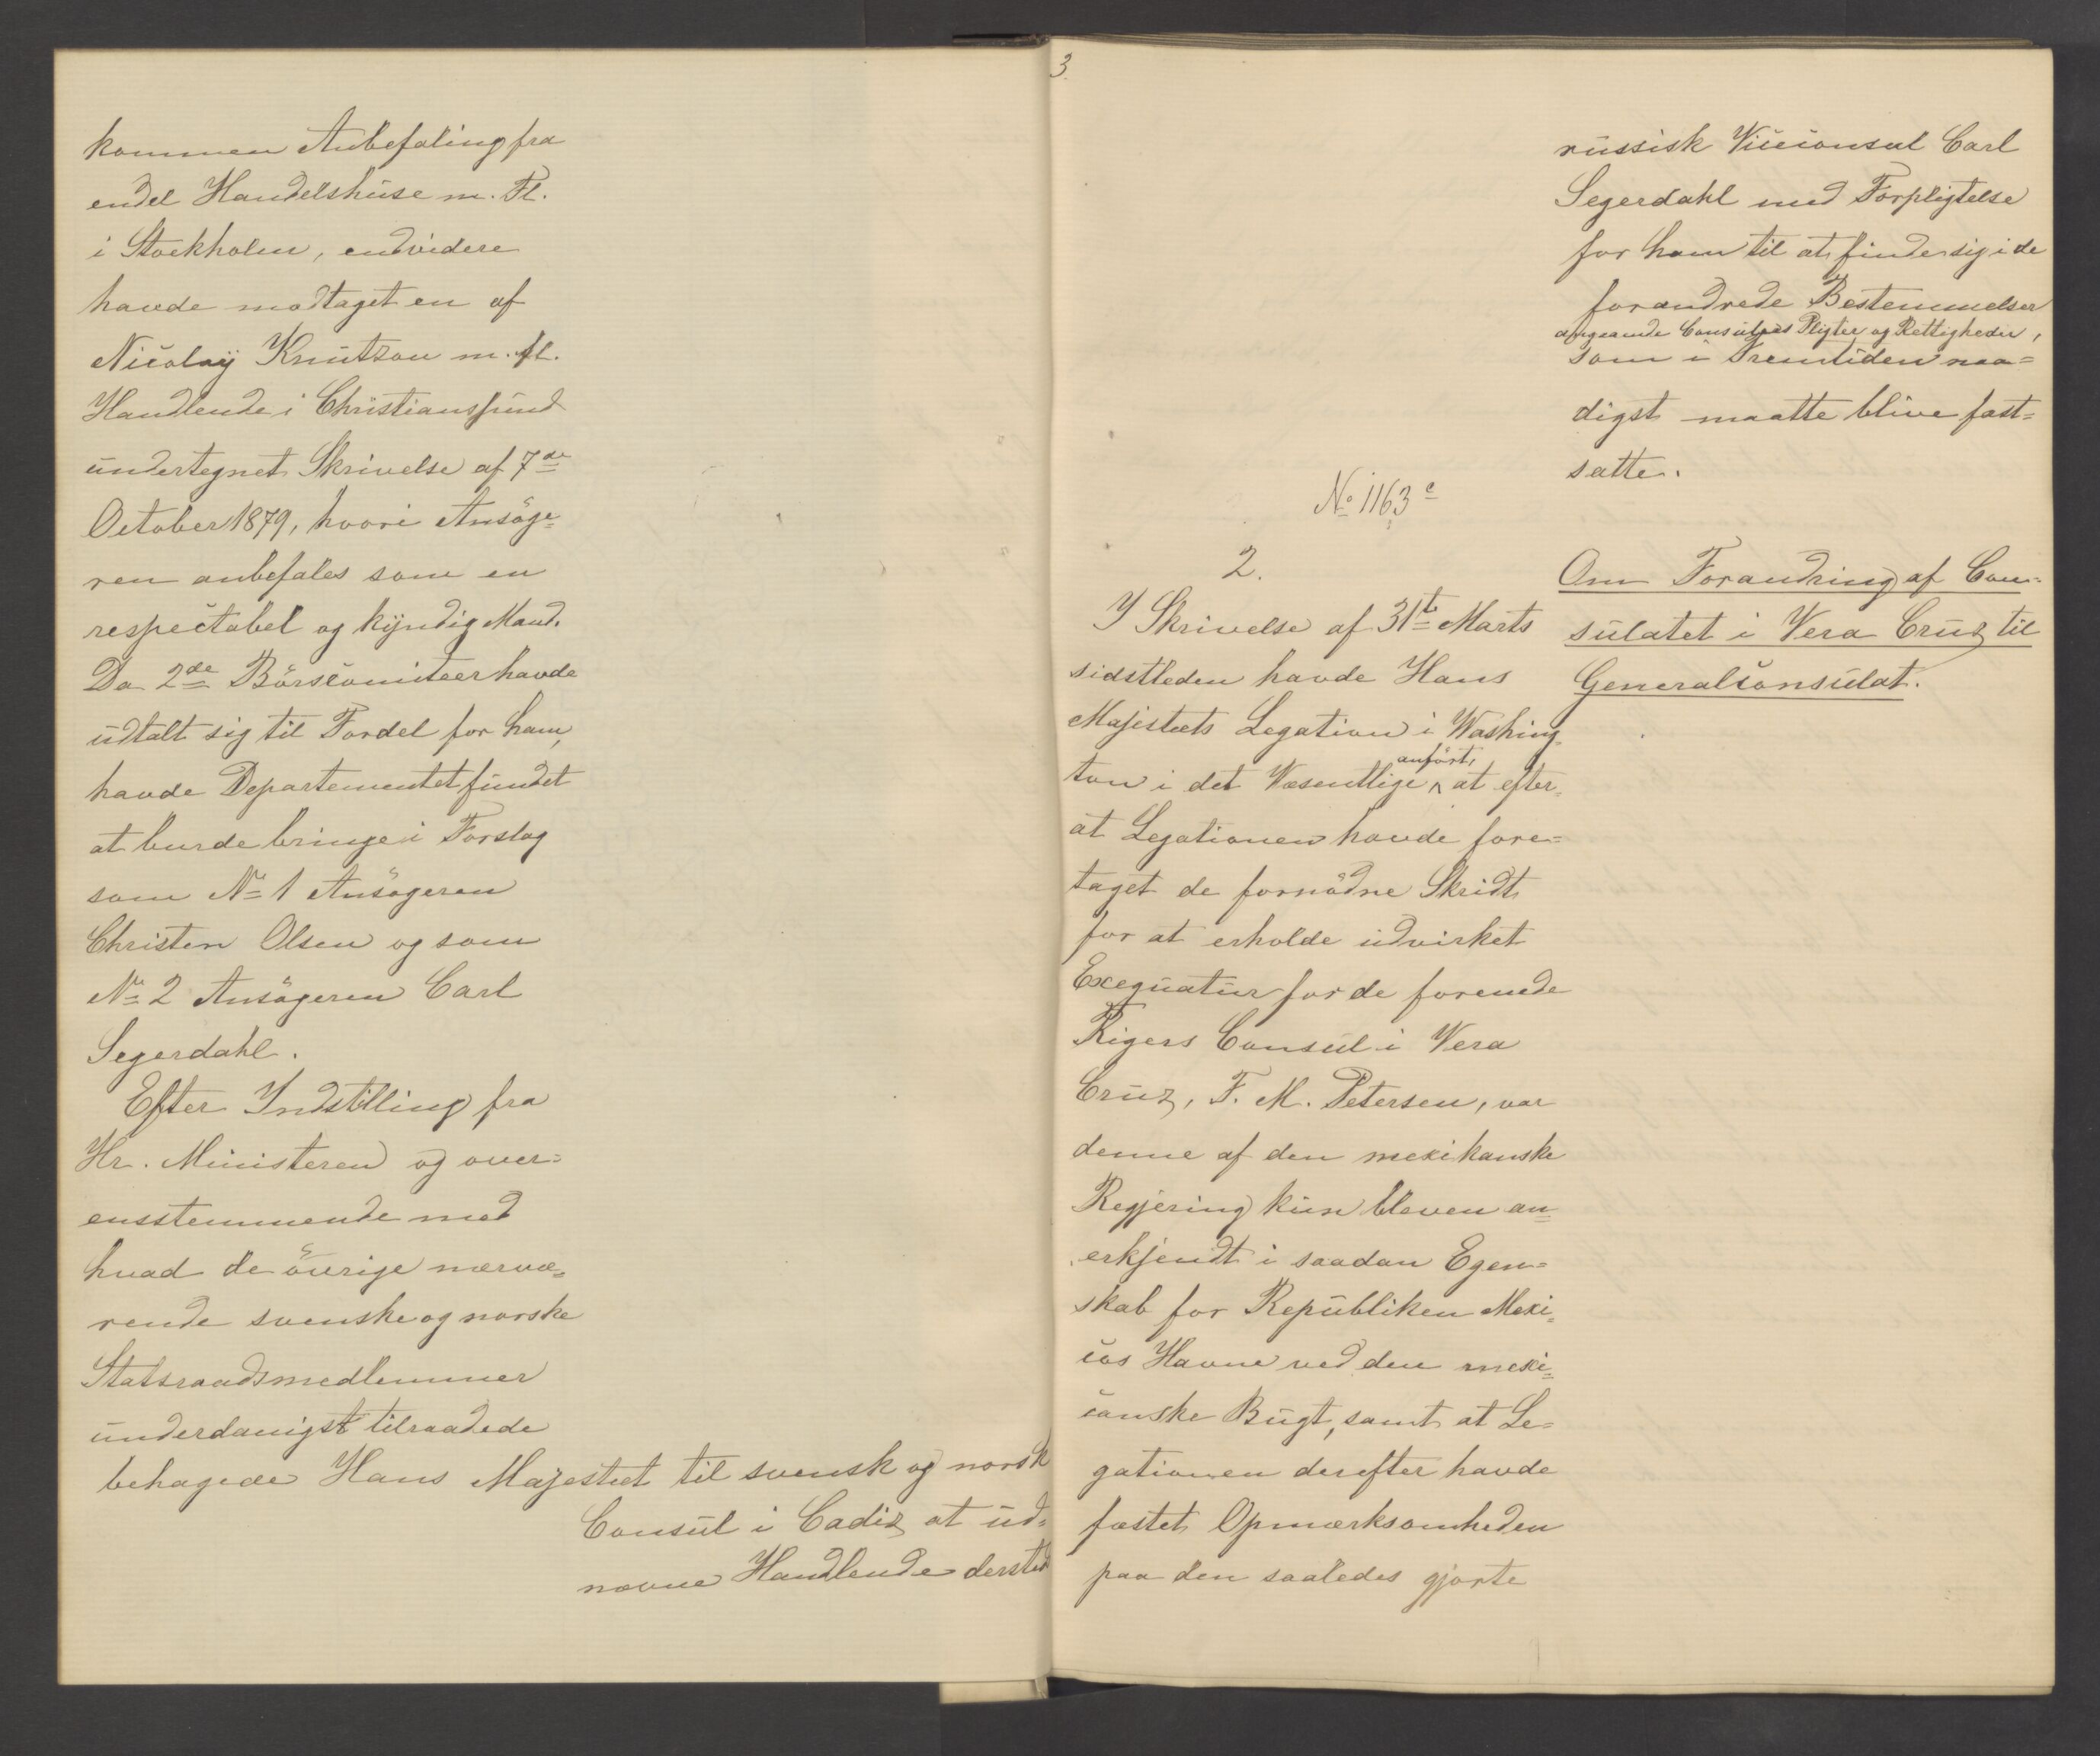 kommen Anbefaling fra
endel Handelshuse m. Fl.
i Stockholm, endvidere
havde modtaget en af
Nicolaÿ Knutzon m. fl.
Handlende i Christianssund
undertegnet Skrivelse af 7de
October 1879, hvori Ansöge=
ren anbefales som en
respectabel og kyndig Mand.
Da 2de Börscomiteer havde
udtalt sig til Fordel for ham,
havde Departementet fundet
at burde bringe i Forslag
som No 1 Ansögeren
Christen Olsen og som
No 2 Ansögeren Carl
Segerdahl.
Efter Indstilling fra
Hr. Ministeren og over=
ensstemmende med
hvad de övrige nærvæ=
rende svenske og norske
Statsraadsmedlemmer
underdanigst tilraadede
behagede Hans Majestæt til svensk og norsk
Consul i Cadiz at ud=
nævne Handlende dersted
3
russisk Viceconsul Carl
Segerdahl med Forpligtelse
for ham til at finde sig i de
forandrede Bestemmelser
angaaende Consulens Pligter og Rettigheder,
som i Fremtiden naa=
digst maatte blive fast=
satte.
No 1163 c
2.
Om Forandring af Con=
sulatet i Vera Cruz til
Generalconsulat.
I Skrivelse af 31te Marts
sidstleden havde Hans
Majestæts Legation i Washing=
ton i det Væsentlige anfört, at efter=
at Legationen havde fore=
taget de fornödne Skridt
for at erholde udvirket
Exequatur for de forenede
Rigers Consul i Vera
Cruz, F. M. Petersen, var
denne af den mexikanske
Regjering kun bleven an=
erkjendt i saadan Egen=
skab for Republiken Mexi=
cos Havne ved den mexi=
canske Bugt, samt at Le=
gationen derefter havde
fæstet Opmærksomheden
paa den saaledes gjorte